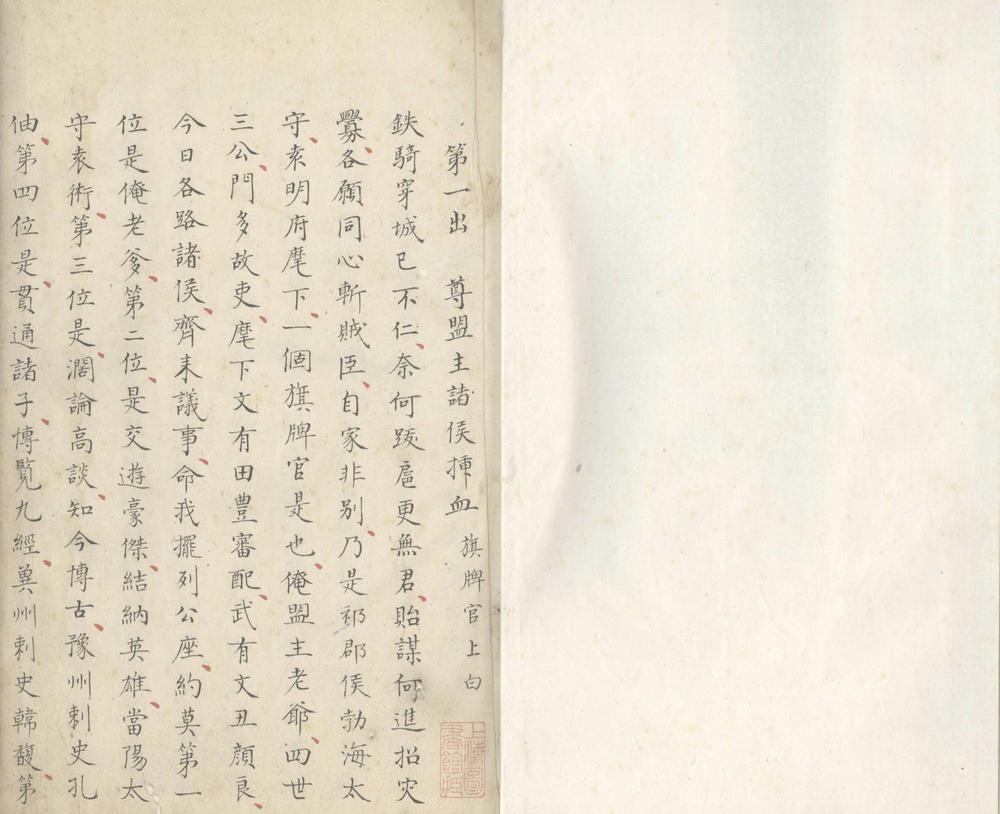 第一出　尊盟主諸侯揷血　旗牌官上白
鉄騎穿城已不仁奈何跋扈更無君貽謀何進招灾
釁各願同心斬賊臣自家非別乃是祁郡侯勃海太
守袁明府麾下一個旗牌官是也俺盟主老爺四世
三公門多故吏麾下文有田豐審配武有文丑顔良
今日各路諸侯齊来議事命我擺列公座約莫第一
位是俺老爹第二位是交遊豪傑結納英雄當陽太
守袁術第三位是濶論高談知今博古豫州刺史孔
伷第四位是貫通諸子博覧九經兾州刺史韓馥第
上海圖書館藏